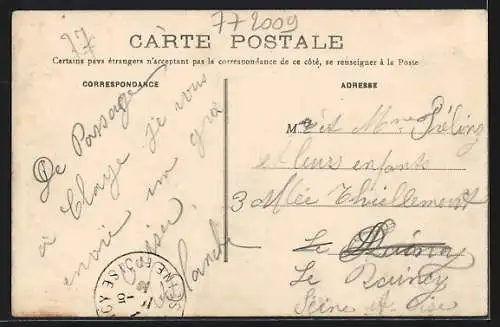 77
772009
CARTE POSTALE
Certains pays étrangers n'acceptant pas la correspondance de ce côté, se renseigner à la Poste
CORRESPONDANCE
ADRESSE
De Passage
à Claye Je vous
envoie un gros
Blanche
M et Mme
et leurs enfants
3 Allée Thiellement
Le Raincy
Le Raincy
Seine et Oise